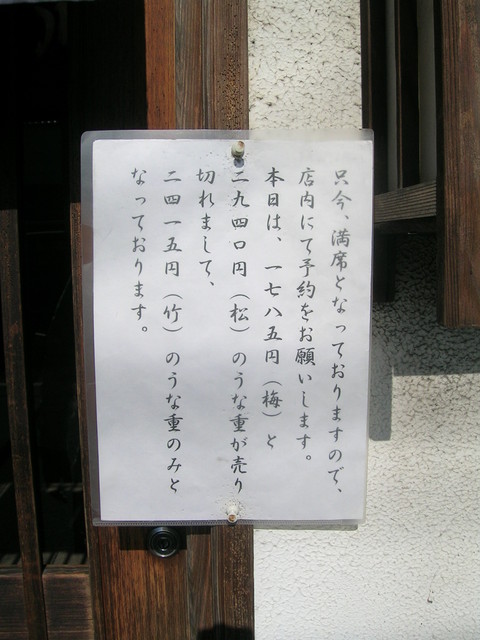 只今、満席となっておりますので、
店内にて予約をお願いします。
本日は、一七八五円（梅）と
二九四〇円（松）のうな重が売り
切れまして、
二四一五円（竹）のうな重のみと
なっております。